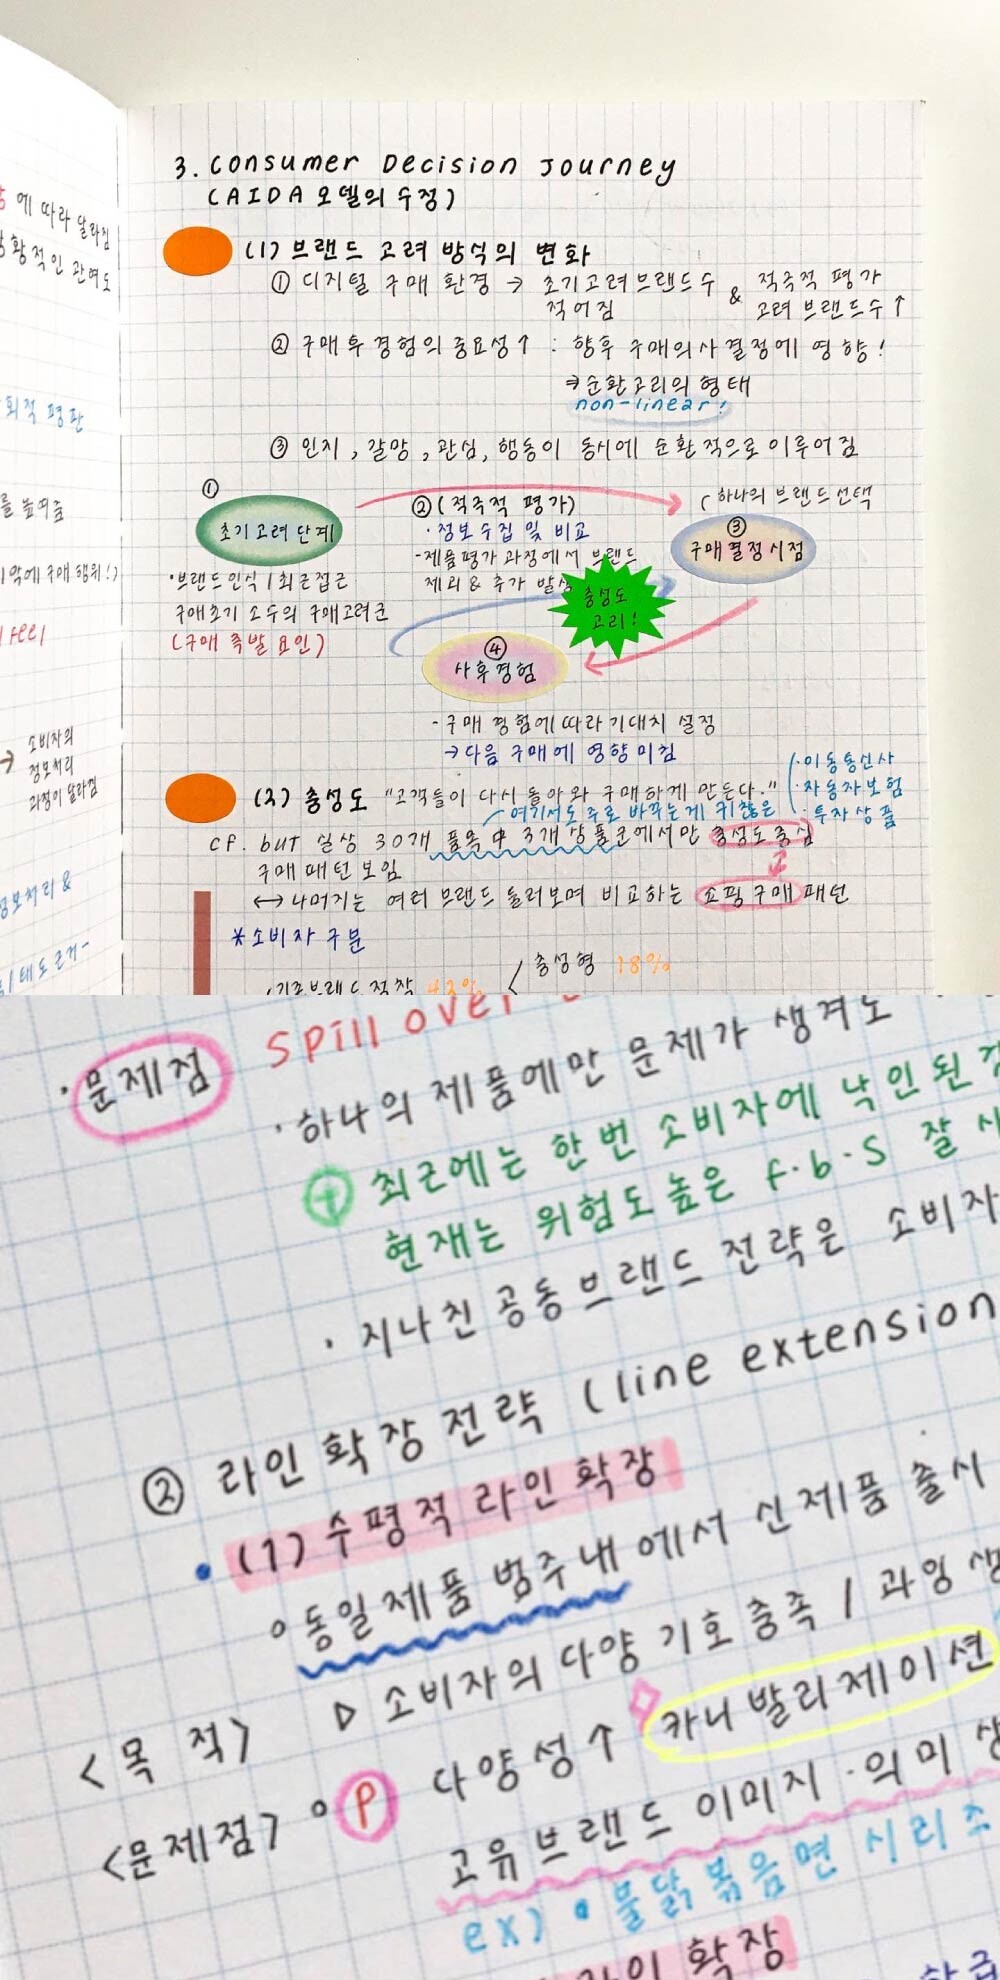 에 따라 달라짐
황적인 관여도
회적 평판
를 높여줌
feel
→ 소비자의
정보처리
과정이 달라짐
정보처리 &
3. Consumer Decision Journey
(AIDA 모델의 수정)
(1) 브랜드 고려 방식의 변화
① 디지털 구매 환경 → 초기고려브랜드수 적어짐 & 적극적 평가 고려 브랜드수↑
② 구매후 경험의 중요성↑ : 향후 구매의사결정에 영향!
→순환고리의 형태
non-linear!
③ 인지, 갈망, 관심, 행동이 동시에 순환적으로 이루어짐
①
초기고려단계
·브랜드인식 / 최근접근
구매초기 소수의 구매고려군
(구매 촉발 요인)
②(적극적 평가)
·정보수집 및 비교
-제품평가 과정에서 브랜드
제외 & 추가 발생
(하나의 브랜드선택
③
구매결정시점
충성도
고리!
④
사후경험
-구매 경험에따라 기대치 설정
→다음 구매에 영향미침
(2) 충성도 "고객들이 다시 돌아와 구매하게 만든다."
·이동통신사
·자동차보험
·투자상품
여기서도 주로 바꾸는게 귀찮은
cf. but 실상 30개 품목 中 3개 상품군에서만 충성도중심
구매패턴보임
↔나머지는 여러 브랜드 둘러보며 비교하는 쇼핑구매 패턴
*소비자 구분
충성형 18%
·문제점
spill over
·하나의 제품에만 문제가 생겨도
+ 최근에는 한번 소비자에 낙인된
현재는 위험도높은 f.b.s 잘
·지나친 공동브랜드 전략은 소비자
② 라인 확장전략 (line extension
·(1) 수평적 라인 확장
동일제품 범주내에서 신제품 출시
<목적> ▷ 소비자의 다양 기호충족 / 과잉
<문제점> P 다양성↑ 카니발리제이션
고유브랜드 이미지·의미
ex) ·불닭볶음면 시리즈
확장